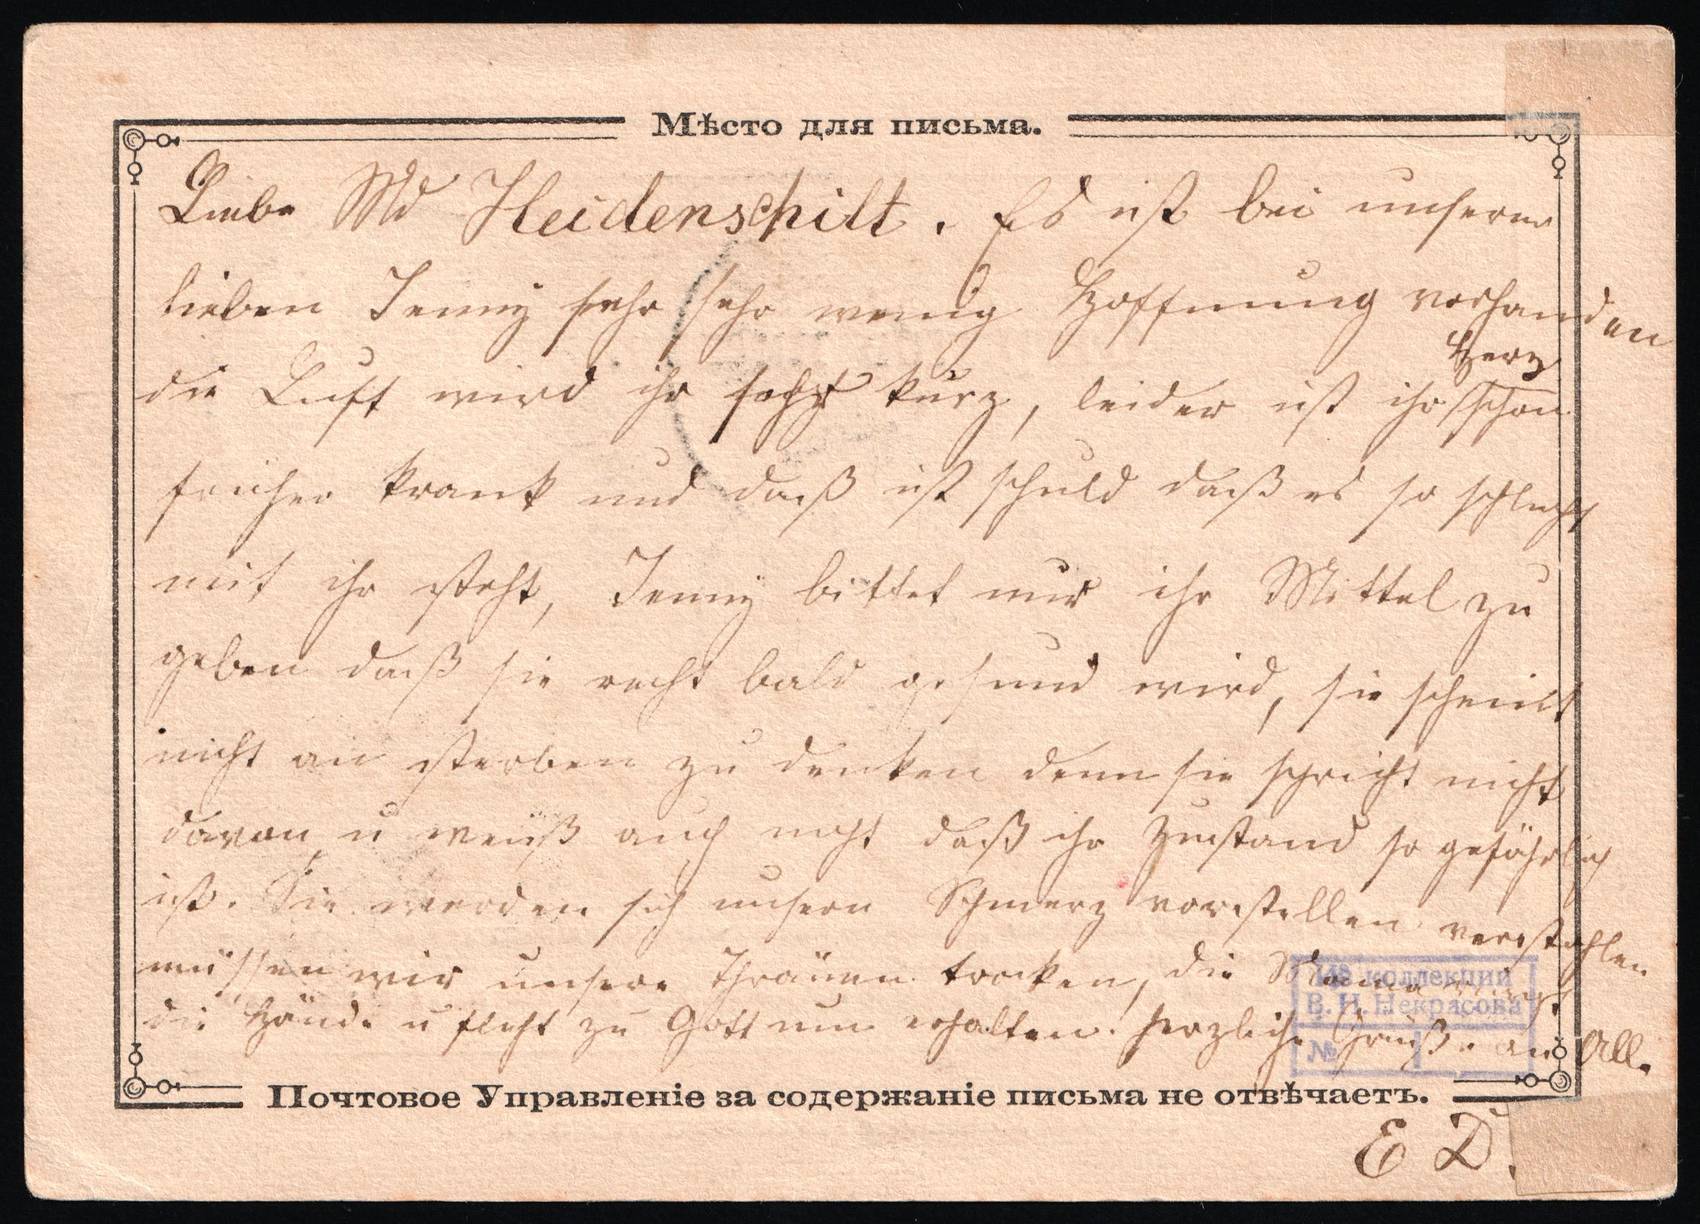 Мѣсто для письма.
Liebe Md Heidenschilt. Es ist bei unserer
lieben Jenny sehr sehr wenig Hoffnung vorhanden
die Luft wird ihr sehr kurz, leider ist ihr Herz schon
früher krank und daß ist schuld daß es so schlecht
mit ihr steht, Jenny bittet nur ihr Mittel zu
geben daß sie recht bald gesund wird, sie scheint
nicht an sterben zu denken denn sie spricht nicht
davon u weiß auch nicht daß ihr Zustand so gefährlich
ist. Sie werden sich unsern Schmerz vorstellen verstohlen
müssen wir unsere Thränen trocken, die Mama ringt
die Hände u fleht zu Gott um erhalten. herzliche Grüße an Alle
Из коллекции
В. Н. Некрасова
№
Почтовое Управленіе за содержаніе письма не отвѣчаетъ.
E D.